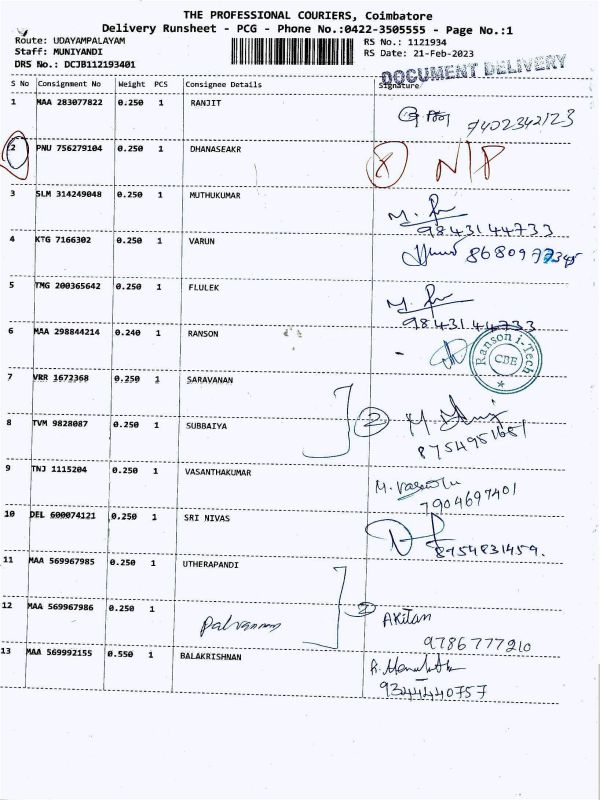 THE PROFESSIONAL COURIERS, Coimbatore
Delivery Runsheet - PCG - Phone No.:0422-3505555 - Page No.:1
Route: UDAYAMPALAYAM
Staff: MUNIYANDI
DRS No.: DCJB112193401
RS No.: 1121934
RS Date: 21-Feb-2023
DOCUMENT DELIVERY
S No Consignment No Weight PCS Consignee Details Signature
1 MAA 283077822 0.250 1 RANJIT
7402342123
2 PNU 756279104 0.250 1 DHANASEAKR X N/P
3 SLM 314249048 0.250 1 MUTHUKUMAR
9843144733
4 KTG 7166302 0.250 1 VARUN
5 TMG 200365642 0.250 1 FLULEK
9843144733
6 MAA 298844214 0.240 1 RANSON
Ranson i-Tech
CBE
7 VRR 1672368 0.250 1 SARAVANAN
8 TVM 9828087 0.250 1 SUBBAIYA 2
8754951681
9 TNJ 1115204 0.250 1 VASANTHAKUMAR
7904697401
10 DEL 600074121 0.250 1 SRI NIVAS
8954831459.
11 MAA 569967985 0.250 1 UTHERAPANDI
12 MAA 569967986 0.250 1 2 Akilan
9786777210
13 MAA 569992155 0.550 1 BALAKRISHNAN
9344440757